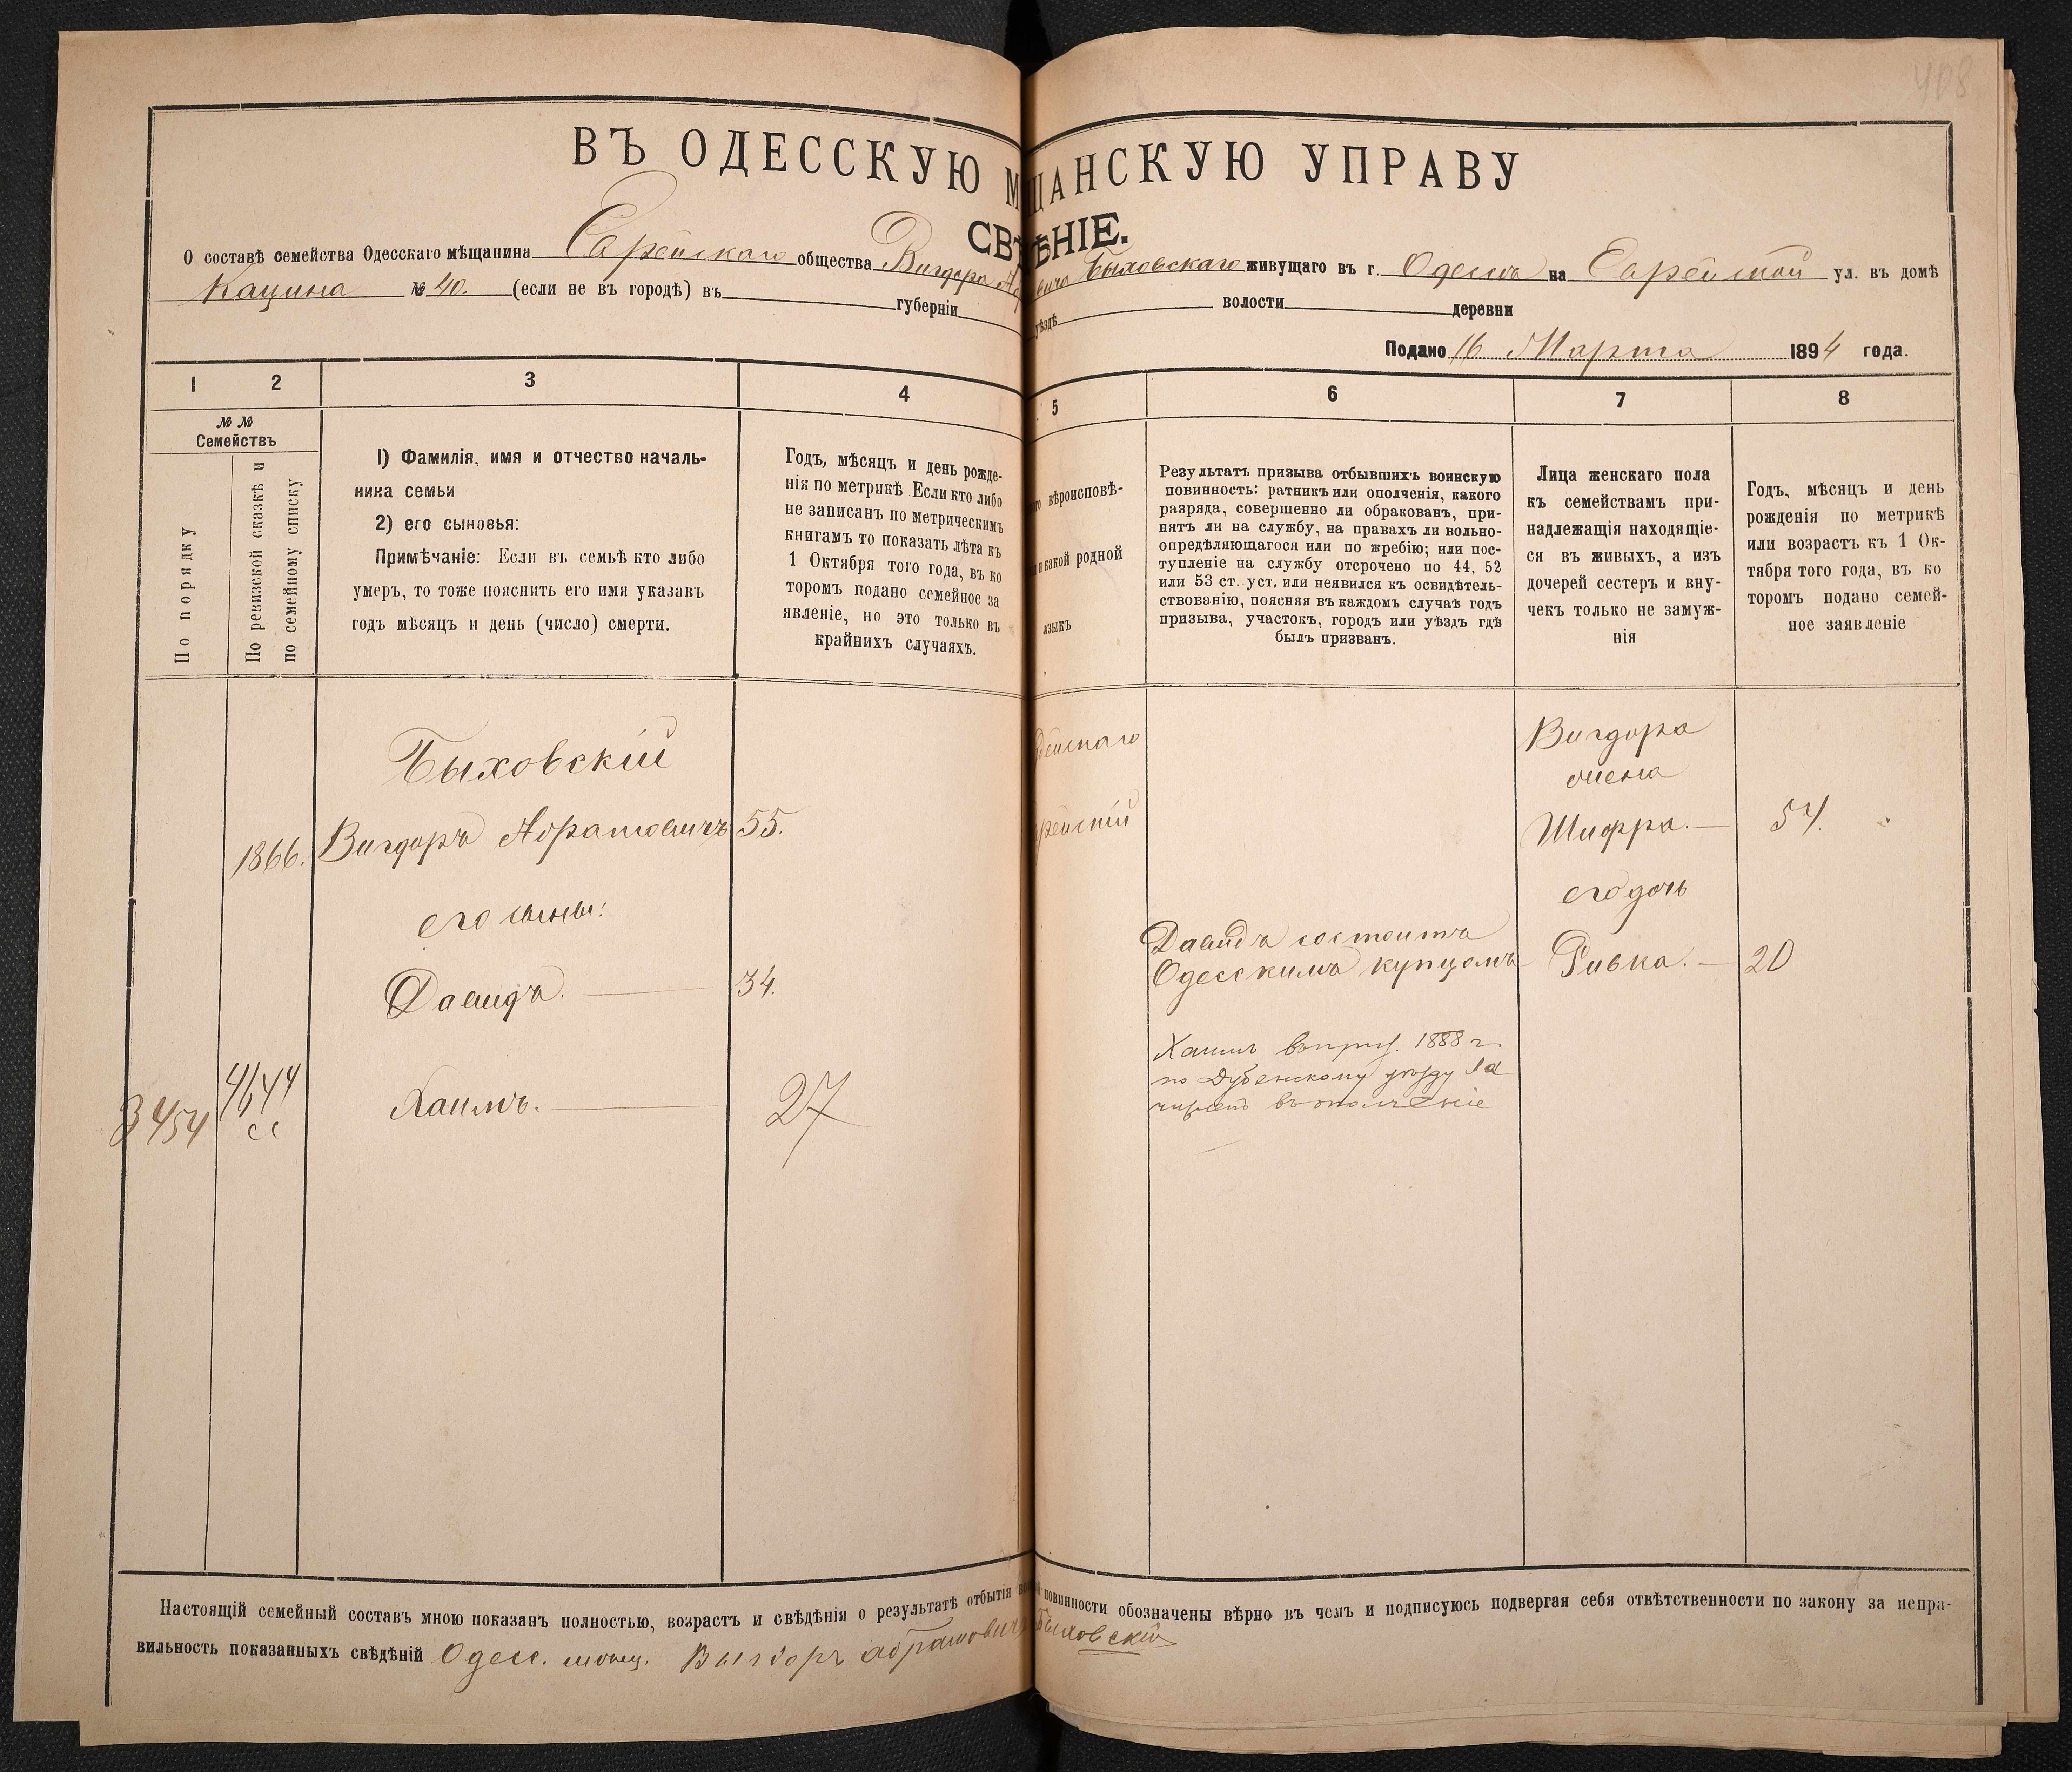 408
ВЪ ОДЕССКУЮ М ЩАНСКУЮ УПРАВУ
СВѢ ѢНІЕ.
О составѣ семейства Одесскаго мѣщанина Еврейскаго общества Вигдора А вича Быховскаго живущаго въ г. Одесса на Еврейской ул. въ домѣ
Кацина № 40. (если не въ городѣ) въ губерніи уѣздѣ волости деревни
Подано 16 Марта 1894 года.
1 2 3 4 5 6 7 8
№ №
Семействъ
По порядку
По ревизской сказкѣ и
по семейному списку
1) Фамилія, имя и отчество началь-
ника семьи
2) его сыновья:
Примѣчаніе: Если въ семьѣ кто либо
умеръ, то тоже пояснить его имя указавъ
годъ мѣсяцъ и день (число) смерти.
Годъ, мѣсяцъ и день рожде-
нія по метрикѣ Если кто либо
не записанъ по метрическимъ
книгамъ то показать лѣта къ
1 Октября того года, въ ко
торомъ подано семейное за
явленіе, но это только въ
крайнихъ случаяхъ.
го вѣроисповѣ-
и какой родной
языкъ
Результатъ призыва отбывшихъ воинскую
повинность: ратникъ или ополченія, какого
разряда, совершенно ли обракованъ, при-
нятъ ли на службу, на правахъ ли вольно-
опредѣляющагося или по жребію; или пос-
тупленіе на службу отсрочено по 44, 52
или 53 ст. уст. или неявился къ освидѣтель-
ствованію, поясняя въ каждомъ случаѣ годъ
призыва, участокъ, городъ или уѣздъ гдѣ
былъ призванъ.
Лица женскаго пола
къ семействамъ при-
надлежащія находящіе-
ся въ живыхъ, а изъ
дочерей сестеръ и вну-
чекъ только не замуж-
нія
Годъ, мѣсяцъ и день
рожденія по метрикѣ
или возрастъ къ 1 Ок-
тября того года, въ ко
торомъ подано семей-
ное заявленіе
Быховскій
1866. Вигдоръ Абрамовичъ 55.
его сыны:
Давидъ. — 34.
3454 4644 Хаимъ. — 27
сс
рейскаго
врейскій
Давидъ состоитъ
Одесскимъ купцомъ
Хаимъ въ приз. 1888 г.
по Дубенскому уѣзду За
численъ въ ополченіе
Вигдора
жена
Шифра. — 54.
его дочь
Ривка. — 20
Настоящій семейный составъ мною показанъ полностью, возрастъ и свѣдѣнія о результатѣ отбытія во повинности обозначены вѣрно въ чемъ и подписуюсь подвергая себя отвѣтственности по закону за непра-
вильность показанныхъ свѣдѣній Одес. мѣщ. Вигдоръ Абрамовичъ Быховскій